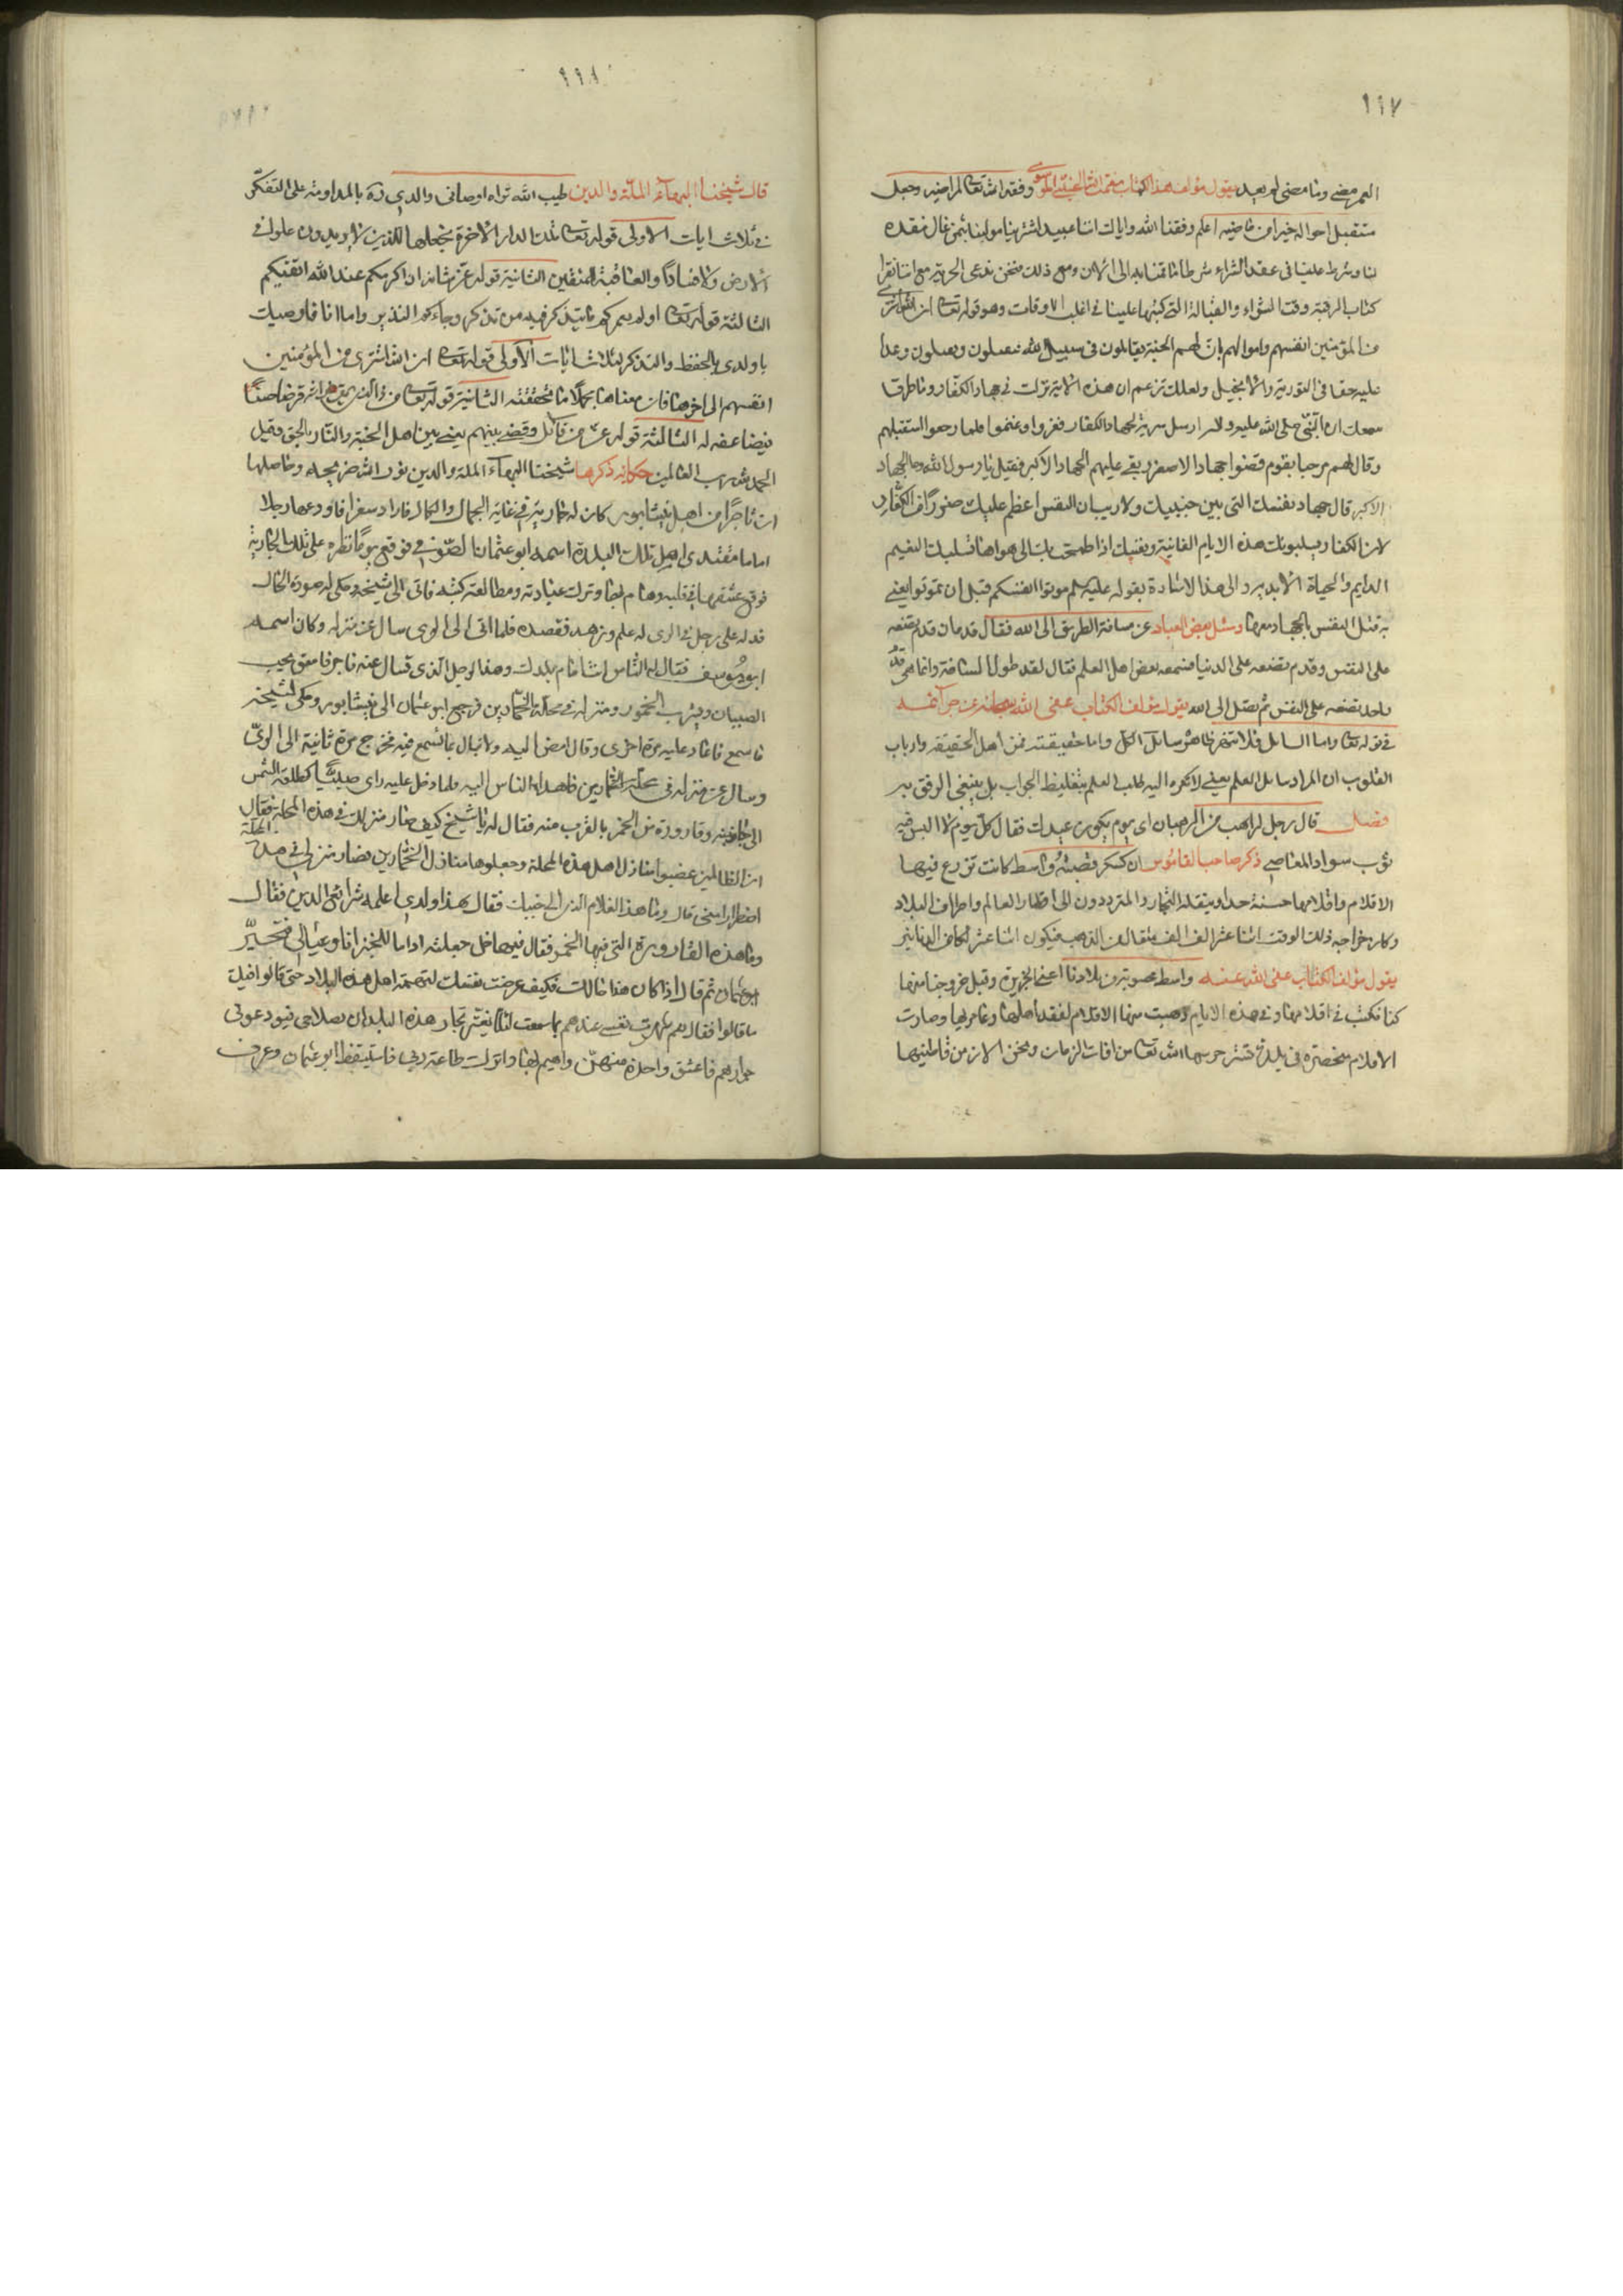 ١١٧
العمر مضى وما مضى لم يعد يقول مؤلف هذا الكتاب نعمت الله الحسيني الموسوي وفقه الله تعالى لمراضيه وجعل
مستقبل احواله خيرا من ماضيه اعلم وفقنا الله واياك اننا عبيد اشترينا مولينا بثمن غال فنقده
لنا وشرط علينا في عقد الشراء شرطا ما قمنا به الى الان ومع ذلك فنحن ندعى الحرية مع اننا نقرا
كتاب الرقية وقت الشراء والقبالة التي كتبها علينا في اغلب الاوقات وهو قوله تعالى ان الله اشترى
من المؤمنين انفسهم واموالهم بان لهم الجنة يقاتلون في سبيل الله فيقتلون ويقتلون وعدا
عليه حقا في التورية والانجيل ولعلك تزعم ان هذه الاية نزلت في جهاد الكفار وما طرق
سمعك ان النبي صلى الله عليه واله ارسل سرية لجهاد الكفار فغزوا وغنموا فلما رجعوا استقبلهم
وقال لهم مرحبا بقوم قضوا جهاد الاصغر وبقي عليهم الجهاد الاكبر فقيل يا رسول الله وما الجهاد
الاكبر قال جهاد نفسك التي بين جنبيك ولا ريب ان النفس اعظم عليك ضررا من الكفار
لان الكفار يسلبونك هذه الايام الفانية ونفسك اذا طمحت بك الى هواها تسلبك النعيم
الدايم والحياة الابدية والى هذا الاشارة بقوله عليه السلم موتوا انفسكم قبل ان تموتوا يعني
به قتل النفس بالجهاد معها وسئل بعض العباد عن مسافة الطريق الى الله فقال قدمان قدم تضعه
على النفس وقدم تضعه على الدنيا فسمعه بعض اهل العلم فقال لقد طول المسافة وانما هي قدم
واحد تضعه على النفس ثم تصل الى الله يقول مؤلف الكتاب عفى الله سبحانه عن جرائمه
في قوله تعالى واما السائل فلا تنهر ظاهره سائل الاكل واما حقيقته فمن اهل الحقيقة وارباب
القلوب ان المراد سائل العلم يعني لا تكره اليه طلب العلم بتغليظ الجواب بل ينبغي الرفق به
فصل قال رجل لراهب من الرهبان اى يوم يكون عيدك فقال كل يوم لا البس فيه
ثوب سواد المعاصي ذكر صاحب القاموس ان كسكر قصبته واسط كانت تزرع فيها
الاقلام واقلامها حسنة جدا وينقله التجار والمترددون الى اقطار العالم واطراف البلاد
وكان خراجه ذلك الوقت اثنا عشر الف الف مثقال من الذهب فيكون اثنا عشر لكا من الدنانير
يقول مؤلف الكتاب عفى الله عنه واسط بصوبة من بلادنا اعنى الجزيرة وقبل خروجنا منها
كنا نكتب في اقلامها وفي هذه الايام ذهبت منها الاقلام لفقد اهلها وعامريها وصارت
الاقلام منحصرة في بلدة تستر حرسها الله تعالى من افات الزمان ونحن الان من قاطنيها
١١٨
قال شيخنا البهاء الملة والدين طيب الله ثراه اوصاني والدي ره بالمداومة على التفكر
في ثلاث ايات الاولى قوله تعالى تلك الدار الاخرة نجعلها للذين لا يريدون علوا في
الارض ولا فسادا والعاقبة للمتقين الثانية قوله عز شانه ان اكرمكم عند الله اتقيكم
الثالثة قوله تعالى اولم نعمركم ما يتذكر فيه من تذكر وجاءكم النذير واما انا فاوصيك
يا ولدى بالحفظ والتذكر لثلاث ايات الاولى قوله تعالى ان الله اشترى من المؤمنين
انفسهم الى اخرها فان معناها مجملا ما تحققته الثانية قوله تعالى من ذا الذي يقرض الله قرضا حسنا
فيضاعفه له الثالثة قوله عز من قائل وقضى بينهم يعني بين اهل الجنة والنار بالحق وقيل
الحمد لله رب العالمين حكاية ذكرها شيخنا البهاء الملة والدين نور الله ضريحه وحاصلها
ان تاجرا من اهل نيشابور كان له جارية في غاية الجمال والكمال فاراد سفرا فاودعها رجلا
اماما مقتدى اهل تلك البلدة اسمه ابو عثمان الصوفي فوقع يوما نظره على تلك الجارية
فوقع عشقها في قلبه وهام بها وترك عبادته ومطالعة كتبه فاتى الى شيخه وحكى له صورة الحال
فدله على رجل في الري له علم وزهد فقصده فلما اتى الى الري سال عن منزله وكان اسمه
ابو يوسف فقال له الناس انت امام بلدك وهذا الرجل الذي تسال عنه فاجر فاسق يحب
الصبيان ويشرب الخمور ومنزله في محلة الخمارين فرجع ابو عثمان الى نيشابور وحكى لشيخه
ما سمع فاعاد عليه مرة اخرى وقال امض اليه ولا تبال بما تسمع فيه فخرج مرة ثانية الى الري
وسال عن منزله في محلة الخمارين فاهداه الناس اليه فلما دخل عليه راى صبيا كطلعة الشمس
الى جانبه وقارورة من الخمر بالقرب منه فقال له يا شيخ كيف صار منزلك في هذه المحلة فقال
ان الظالمين غصبوا منازل اهل هذه المحلة وجعلوها منازل الخمارين فصار منزلي في هذه المحلة
اضطرارا مني قال وما هذا الغلام الذي الى جنبك فقال هذا ولدي اعلمه شرائع الدين فقال
وما هذه القارورة التي فيها الخمر فقال فيها خل جعلته اداما للخبز انا وعيالي فتحير
ابو عثمان ثم قال اذا كان هذا حالك فكيف عرضت نفسك لتهمة اهل هذه البلاد حتى قالوا فيك
ما قالوا فقال نعم شهرت نفسي عندهم بما سمعت لئلا يغتر تجار هذه البلدان بصلاحي فيودعوني
جواريهم فاعشق واحدة منهن واهيم بها واترك طاعة ربي فاستيقظ ابو عثمان وعرف